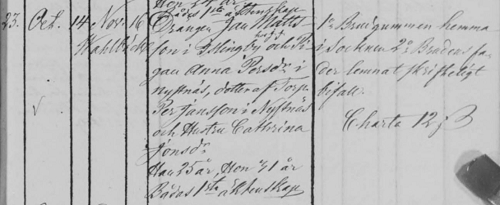 Bådas 1sta äktenskap
23. Oct. 14 Nov. 16
Drängen Jan Matts
son i Ellingby och Pi
gan Anna Persdr i
Nystnäs, dotter af Torp.
Per Jansson i Nystnäs
och Hustru Cathrina
Jonsdr
Han 25 år, Hon 31 år
Bådas 1sta äktenskap
1o Brudgummen hemma
i Socknen 2o Brudens fa
der lemnat skriftligt
bifall.
Charta 12 ß